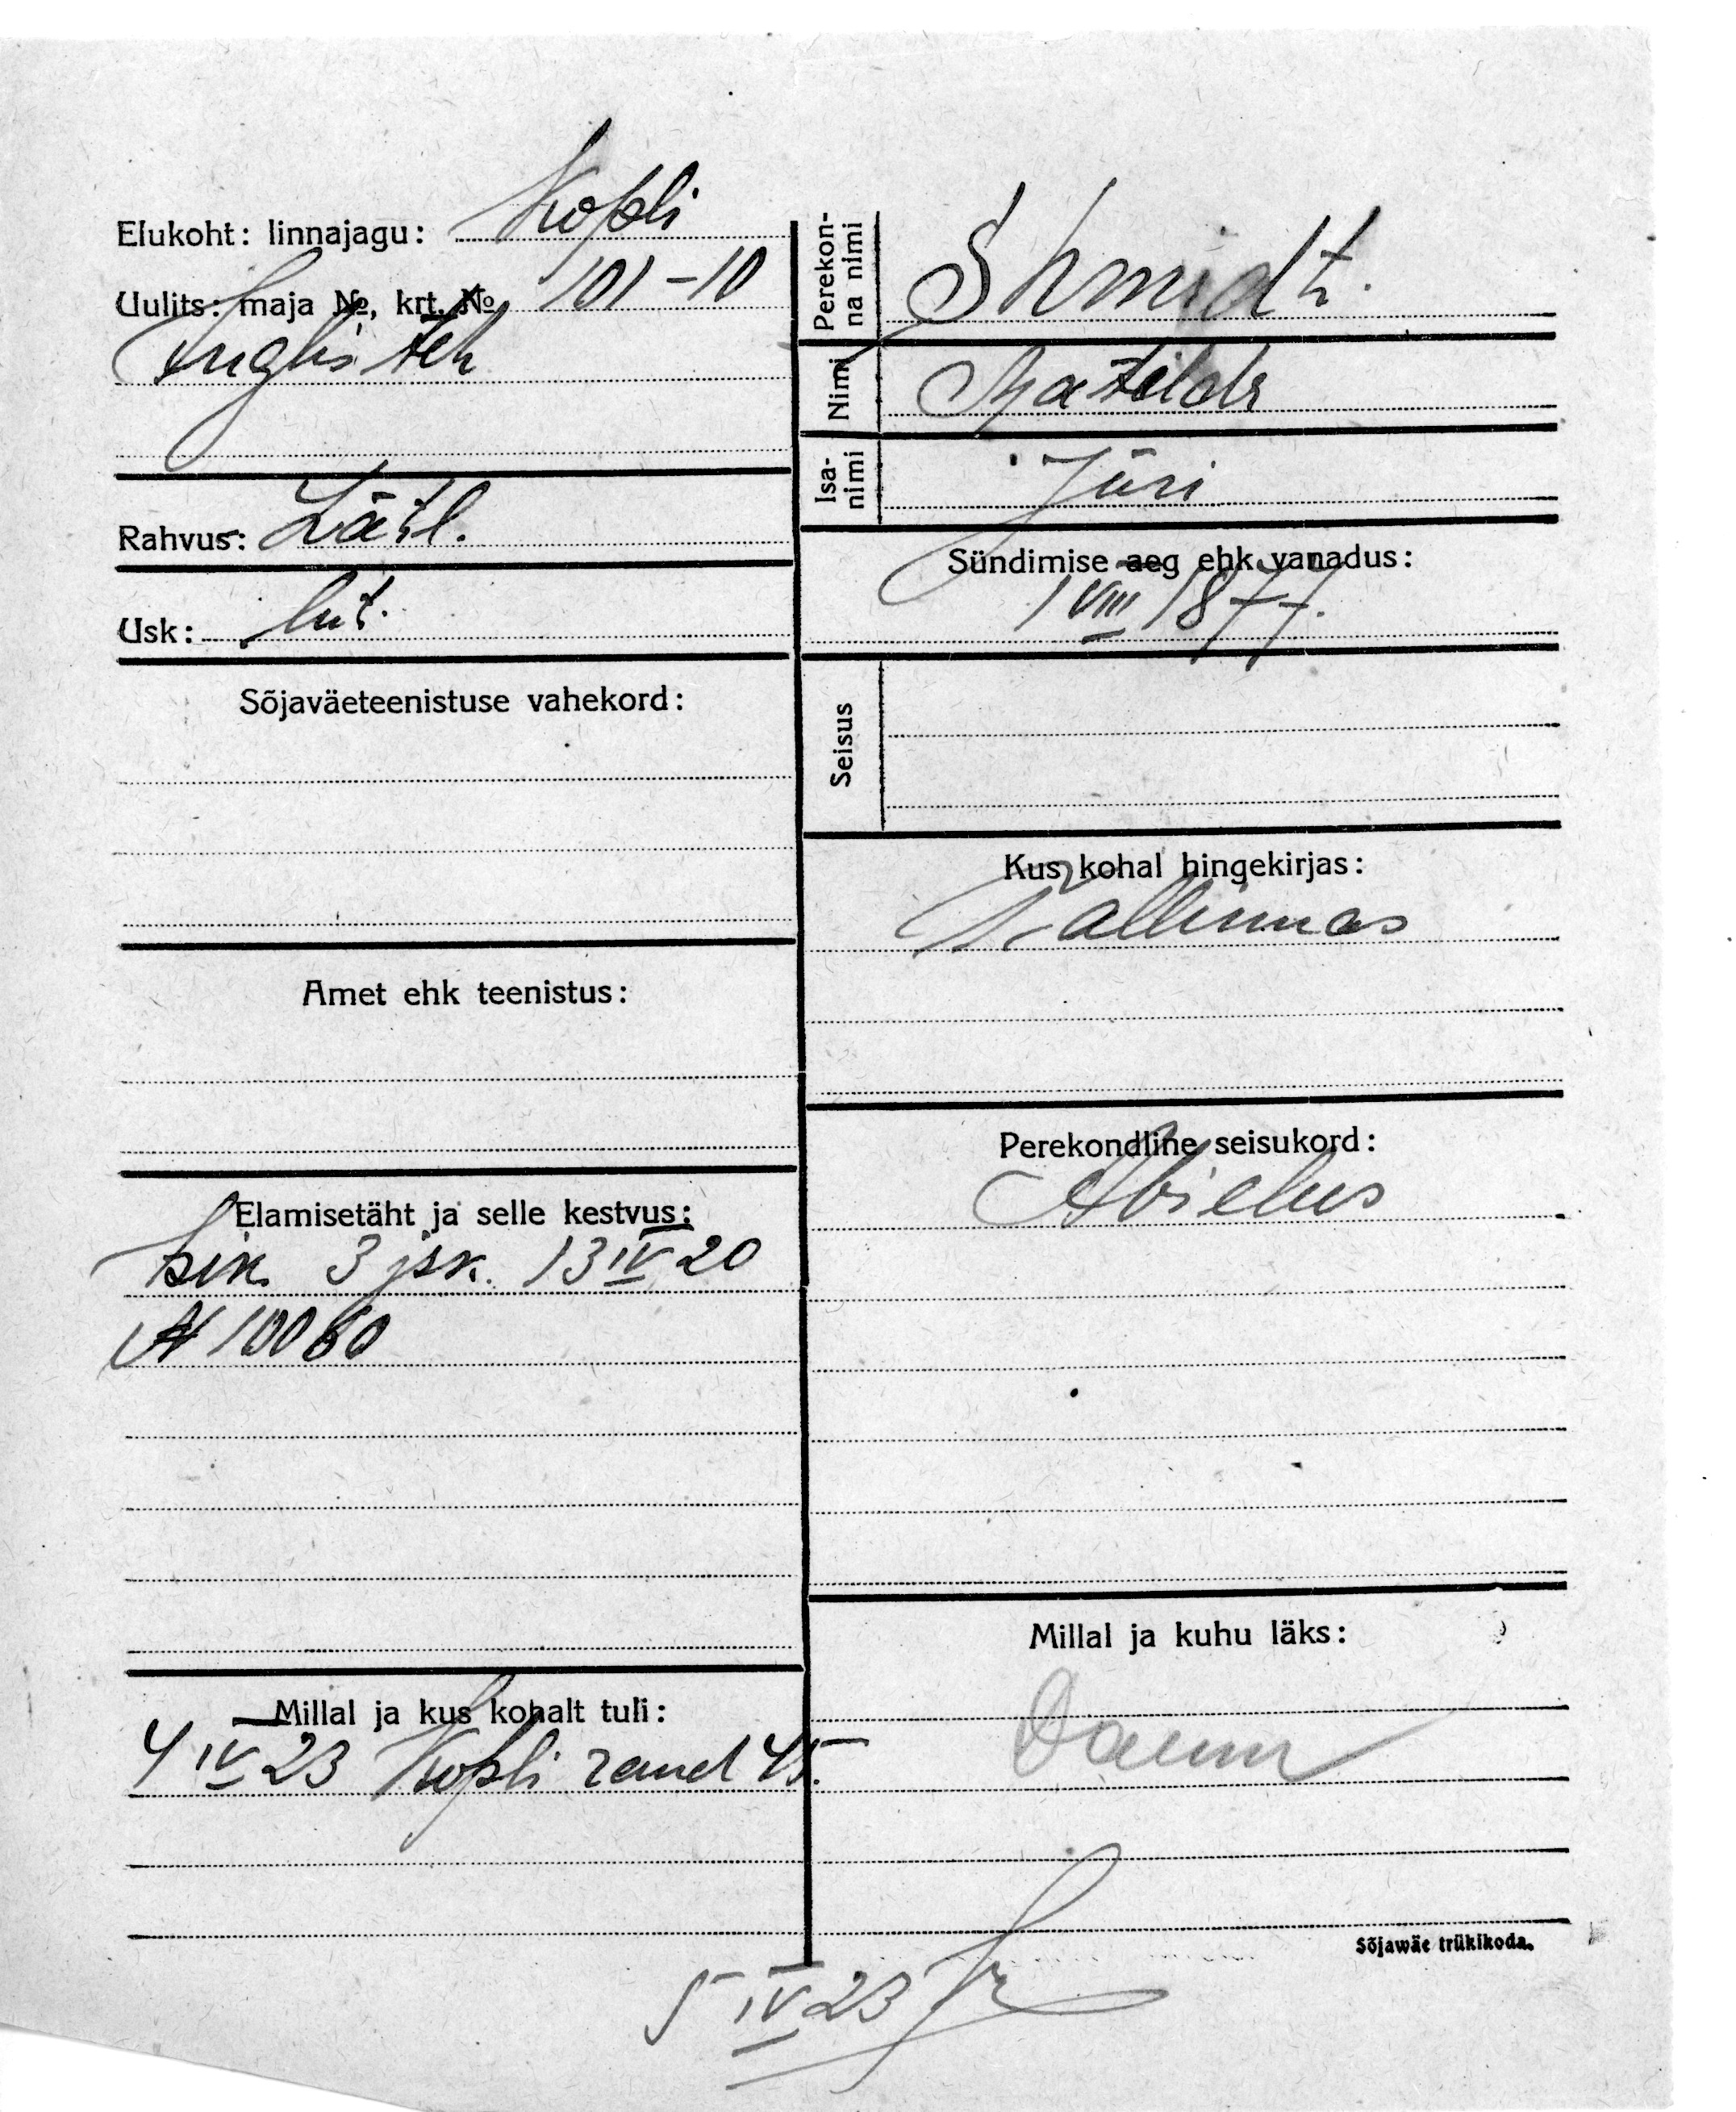 Elukoht: linnajagu: Kopli
Uulits: maja №, krt. № 101-10
Inglis teh
Rahvus: Lätl.
Usk: lut.
Sõjaväeteenistuse vahekord:
Amet ehk teenistus:
Elamisetäht ja selle kestvus:
3 jsk. 13 IV 20
N 10060
Millal ja kus kohalt tuli:
4 IV 23 Kopli rand 45.
Perekon-
na nimi
Shmidt.
Nimi Matilde
Isa-
nimi
Jüri
Sündimise aeg ehk vanadus:
1 VIII 1877.
Seisus
Kus kohal hingekirjas:
Tallinnas
Perekondline seisukord:
Abielus
Millal ja kuhu läks:
Sõjawäe trükikoda.
5 IV 23